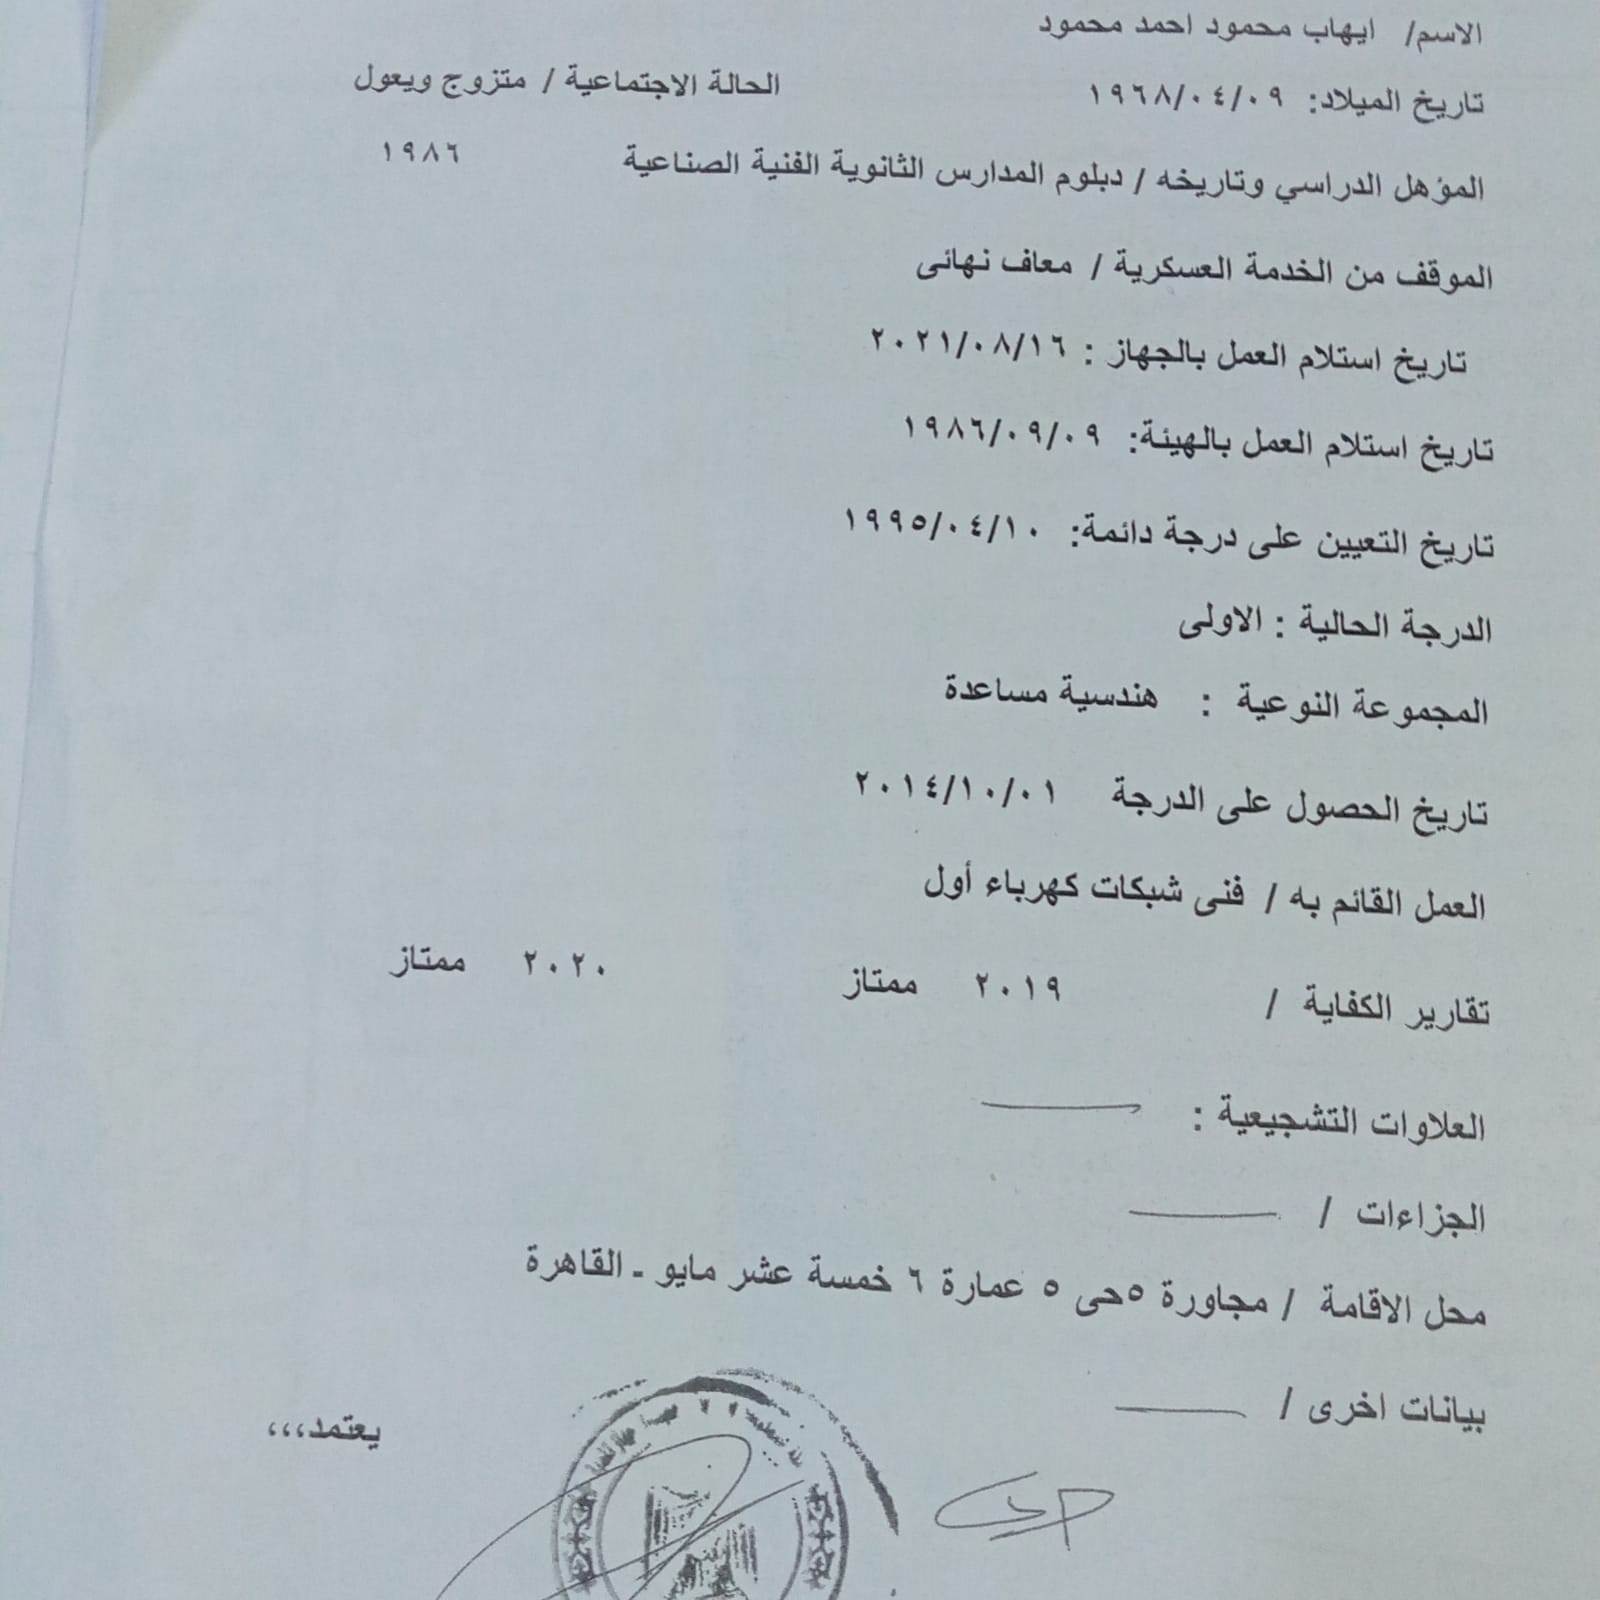 الاسم/ ايهاب محمود احمد محمود
تاريخ الميلاد: ١٩٦٨/٠٤/٠٩ الحالة الاجتماعية / متزوج ويعول
المؤهل الدراسي وتاريخه / دبلوم المدارس الثانوية الفنية الصناعية ١٩٨٦
الموقف من الخدمة العسكرية / معاف نهائى
تاريخ استلام العمل بالجهاز : ٢٠٢١/٠٨/١٦
تاريخ استلام العمل بالهيئة: ١٩٨٦/٠٩/٠٩
تاريخ التعيين على درجة دائمة: ١٩٩٥/٠٤/١٠
الدرجة الحالية : الاولى
المجموعة النوعية : هندسية مساعدة
تاريخ الحصول على الدرجة ٢٠١٤/١٠/٠١
العمل القائم به / فنى شبكات كهرباء أول
تقارير الكفاية / ٢٠١٩ ممتاز ٢٠٢٠ ممتاز
العلاوات التشجيعية :
الجزاءات /
محل الاقامة / مجاورة ٥حى ٥ عمارة ٦ خمسة عشر مايو - القاهرة
بيانات اخرى /
يعتمد،،،